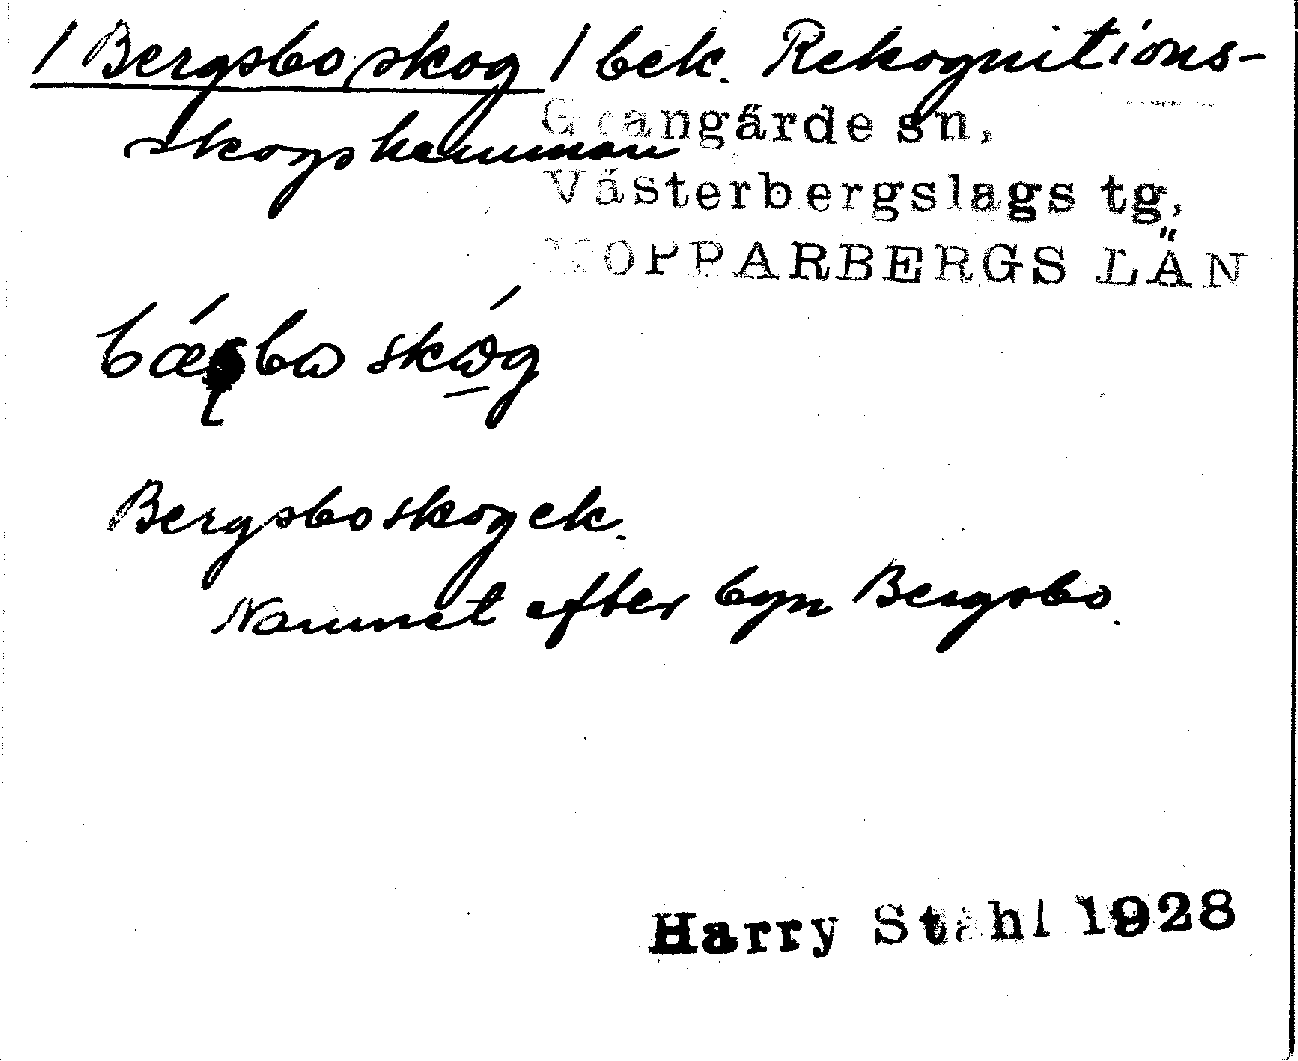 / Bergsbo skog / bek. Rekognitions-
skogshemman
Grangärde sn,
Västerbergslags tg,
KOPPARBERGS LÄN
Bergsboskog ek.
Namnet efter byn Bergsbo.
Harry Ståhl 1928